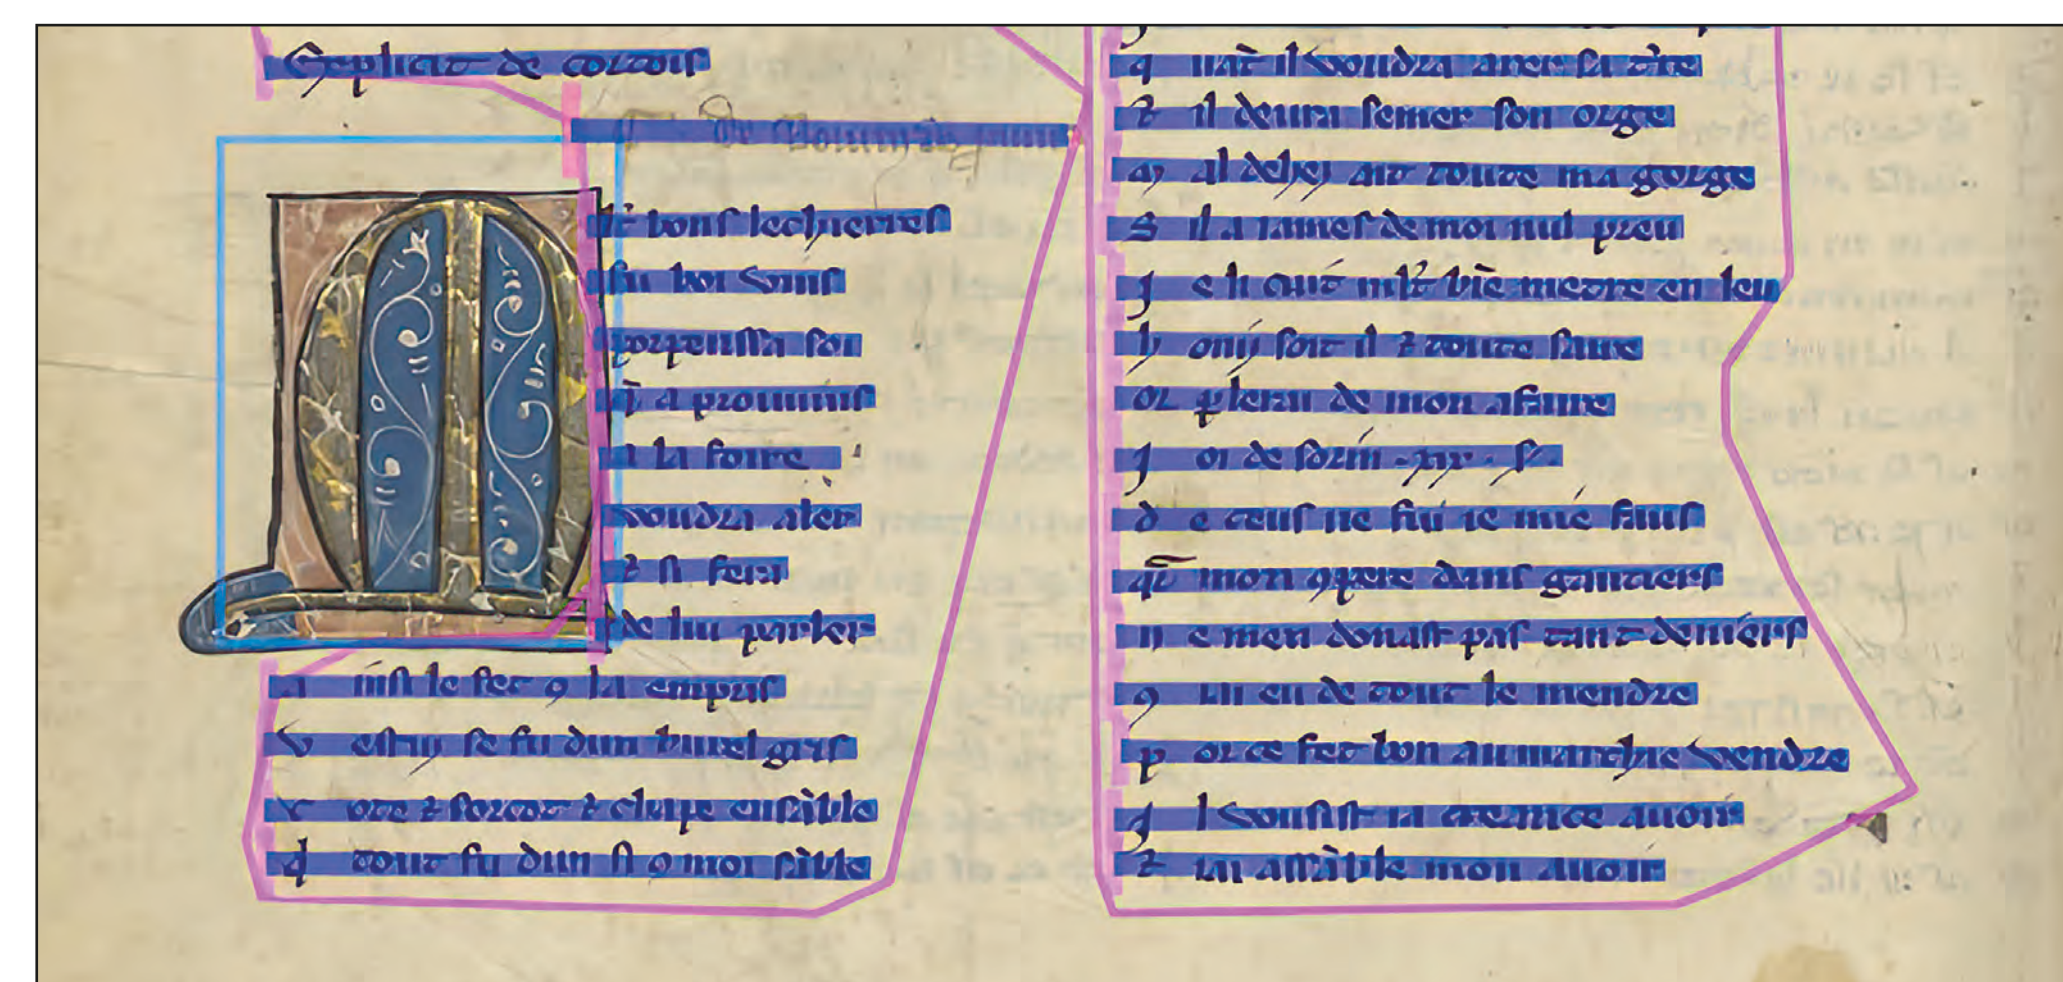 Explicit de cortois
M
lt᷑ bons lechierres
fu boiuins
porpenssa soi
q̃ a prouuins
a la foire
voudra aler
⁊ si fera
de lui parler
a insi le fet ꝯ la empris
v estuz se fu dun burel gris
c ote ⁊ sorcot ⁊ chape ensãble
q̃ tout fu dun si ꝯ moi sãble
q uãt il voudra arer sa t᷑re
⁊ il deura semer son orge
m al dehez ait toute ma gorge
s il a iames de moi nul preu
j e li cuit mlt᷑ biẽ metre en leu
h oniz soit il ⁊ toute saire
or ꝑlerai de mon afaire
j oi de sorin .xix. s᷑.
d e ceus ne fui ie mie faus
q̃ mon ꝯpere dans gautiers
n e men donast pas tant deniers
ꝯ iai eu de tout le mendre
p or ce fet bon au marchie vendre
j l vousist ia creance auoir
⁊ iai assãble mon auoir